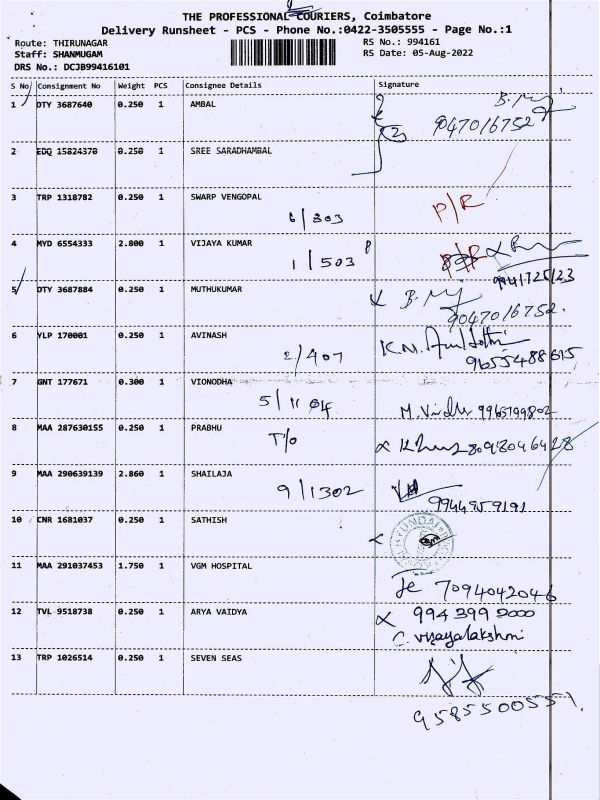 THE PROFESSIONAL COURIERS, Coimbatore
Delivery Runsheet - PCS - Phone No.:0422-3505555 - Page No.:1
Route: THIRUNAGAR RS No.: 994161
Staff: SHANMUGAM RS Date: 05-Aug-2022
DRS No.: DCJB99416101
S No Consignment No Weight PCS Consignee Details Signature
1 DTY 3687640 0.250 1 AMBAL
9047016752
2 EDQ 15824370 0.250 1 SREE SARADHAMBAL
3 TRP 1318782 0.250 1 SWARP VENGOPAL
6/303 P/R
4 MYD 6554333 2.800 1 VIJAYA KUMAR
1/503 P/R
9941725123
5 DTY 3687884 0.250 1 MUTHUKUMAR
9047016752.
6 YLP 170001 0.250 1 AVINASH
2/407 K.N.
9655488615
7 GNT 177671 0.300 1 VIONODHA
5/1104 M. 9965799802
8 MAA 287630155 0.250 1 PRABHU
T/o 8098046428
9 MAA 290639139 2.860 1 SHAILAJA
9/1302
9944959191
10 CNR 1681037 0.250 1 SATHISH
HYUNDAI
11 MAA 291037453 1.750 1 VGM HOSPITAL
7094042046
12 TVL 9518738 0.250 1 ARYA VAIDYA
994 399 2000
C. vijayalakshmi
13 TRP 1026514 0.250 1 SEVEN SEAS
9585500551.